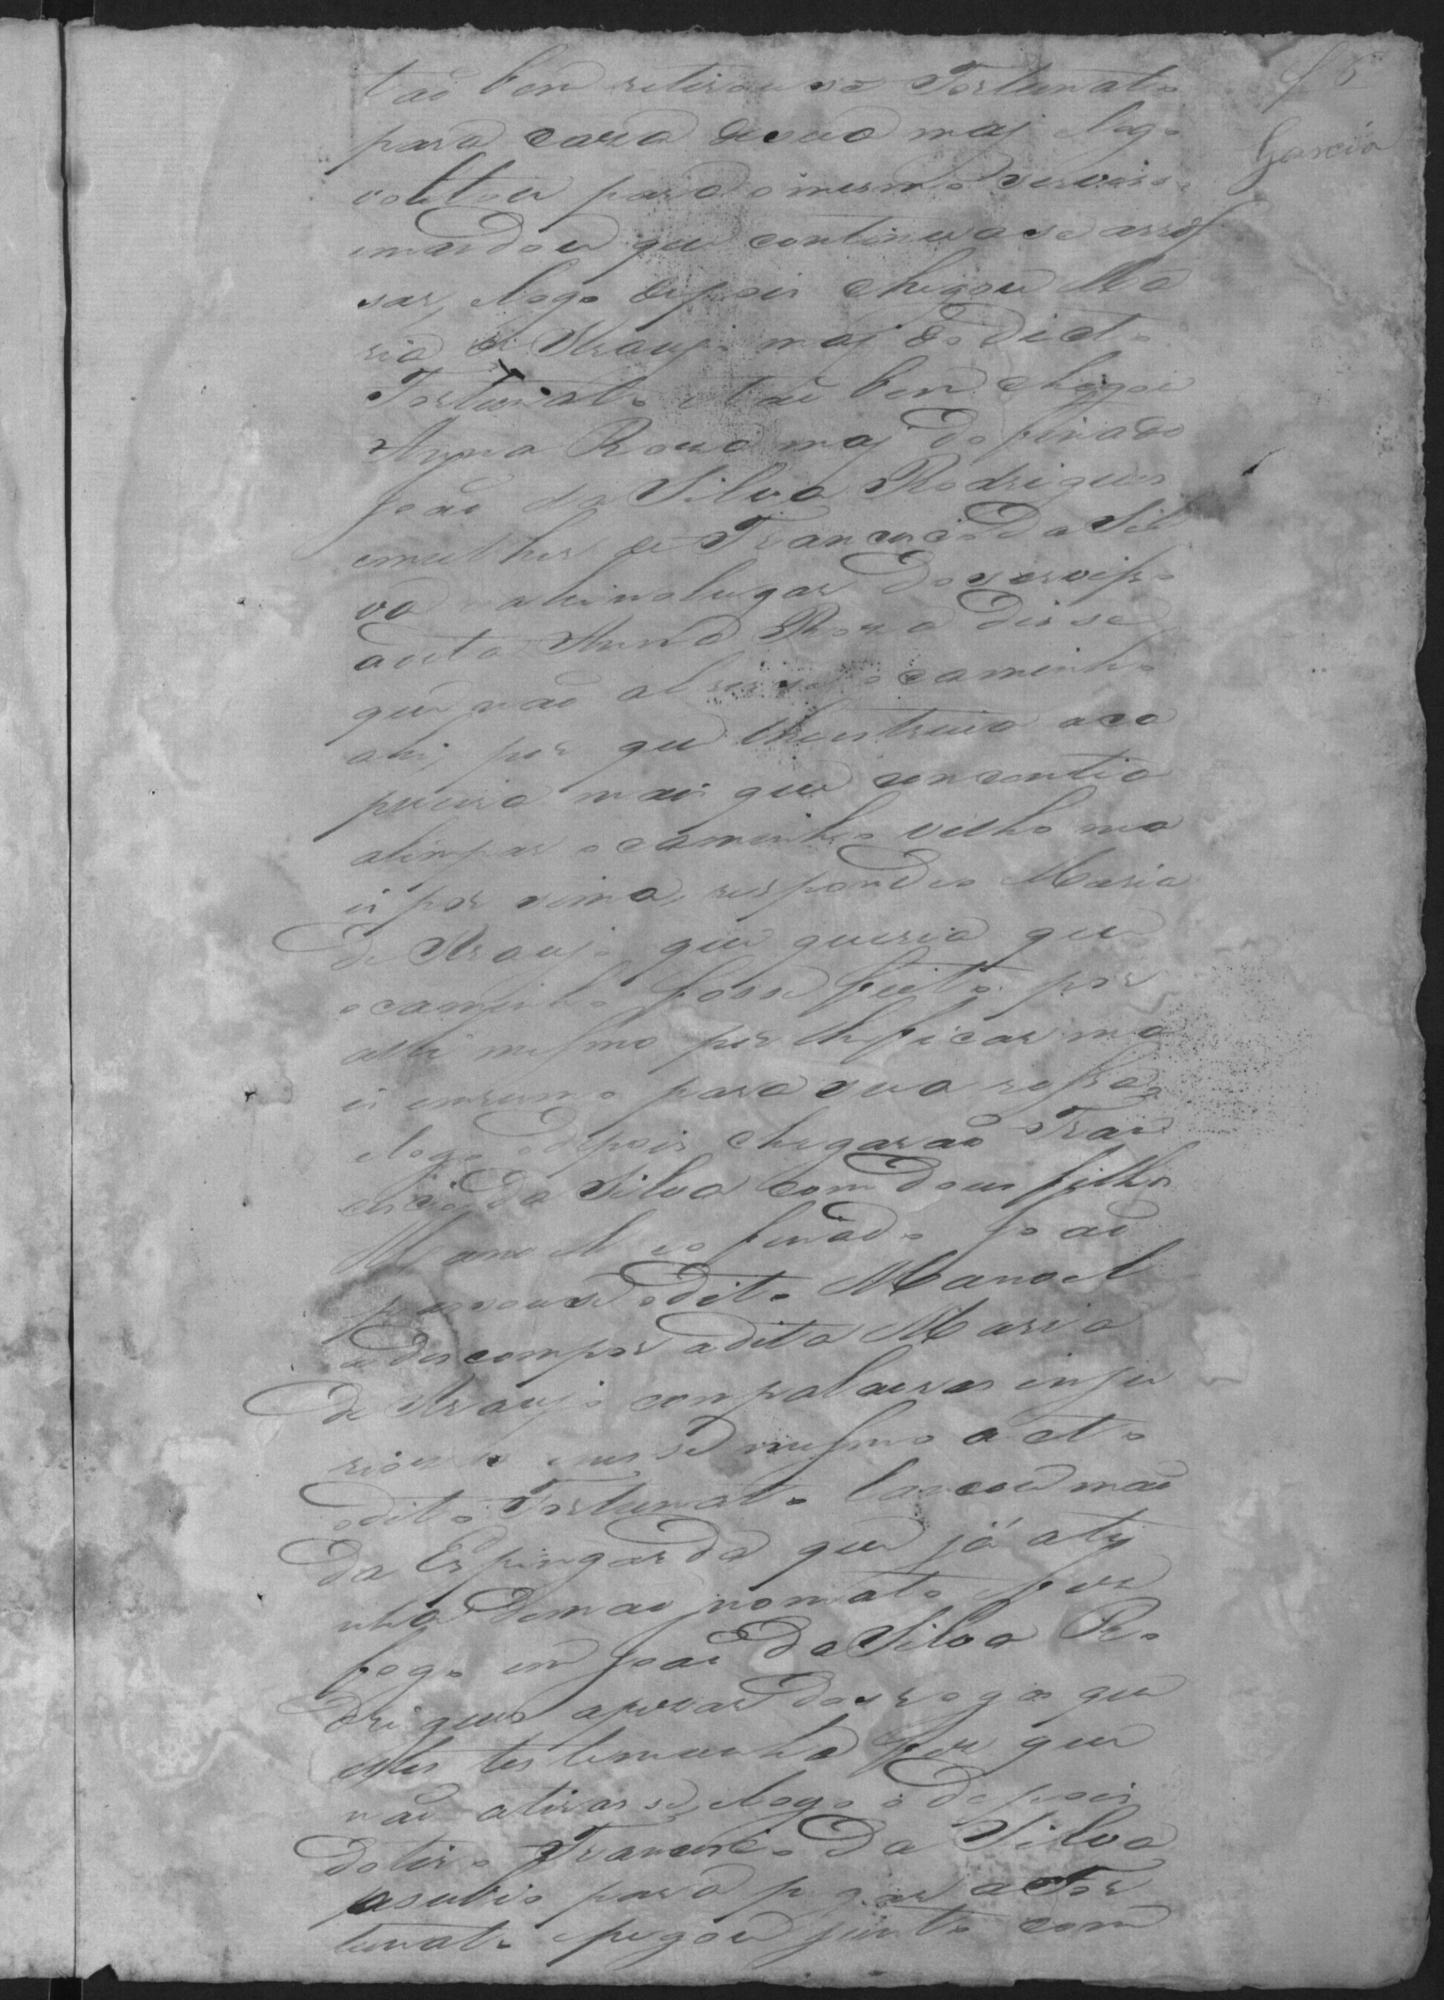 f 5
Garcia
tão bem retirouse Fortunato
para caza de sua maj elogo
voltou para o mesmo serviso
mandou que continuase arro
sar, elogo depois chegou Ma
ria de Araujo maj do dicto
Fortunato e tão bem chegou
Anna Roza maj do finado
João da Silva Rodrigues
emulher de Francisco da Sil
va nahi no lugar do servisso
aesta Anna Roza disse
que não abrise o caminho
ahi, por que lhe estruia aca
pueira mais que consentia
alimpar o caminho velho ma
is por sima, respondeo Maria
de Araujo que queria que
o caminho fosse feito por
alhi mesmo por lhe ficar ma
is emrumo para sua rossa,
elogo depois chegarão Fran
cisco da Silva com dous filhos
Manoel eo finado João
passouse o dito Manoel
a descompor a dita Maria
de Araujo com palavras inju
riozas enesse mesmo acto
odito Fortunato lancou mão
da Espingarda que já aty
nha de mão no mato e fez
fogo em João da Silva Ro
drigues apezar dos rogos que
elles testemunha fez que
não atirarse, elogo depois
do tiro Francisco da Silva
para pegar a For
tunato epegou junto com